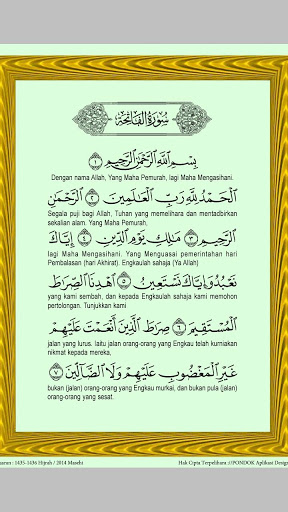 سُورَةُ الفَاتِحَةِ
بِسْمِ اللَّهِ الرَّحْمَٰنِ الرَّحِيمِ ١
Dengan nama Allah, Yang Maha Pemurah, lagi Maha Mengasihani.
الْحَمْدُ لِلَّهِ رَبِّ الْعَالَمِينَ ٢ الرَّحْمَٰنِ
Segala puji bagi Allah, Tuhan yang memelihara dan mentadbirkan
sekalian alam. Yang Maha Pemurah,
الرَّحِيمِ ٣ مَالِكِ يَوْمِ الدِّينِ ٤ إِيَّاكَ
lagi Maha Mengasihani. Yang Menguasai pemerintahan hari
Pembalasan (hari Akhirat). Engkaulah sahaja (Ya Allah)
نَعْبُدُ وَإِيَّاكَ نَسْتَعِينُ ٥ اهْدِنَا الصِّرَاطَ
yang kami sembah, dan kepada Engkaulah sahaja kami memohon
pertolongan. Tunjukkan kami
الْمُسْتَقِيمَ ٦ صِرَاطَ الَّذِينَ أَنْعَمْتَ عَلَيْهِمْ
jalan yang lurus. Iaitu jalan orang-orang yang Engkau telah kurniakan
nikmat kepada mereka,
غَيْرِ الْمَغْضُوبِ عَلَيْهِمْ وَلَا الضَّالِّينَ ٧
bukan (jalan) orang-orang yang Engkau murkai, dan bukan pula (jalan)
orang-orang yang sesat.
: 1435-1436 Hijrah / 2014 Masehi
Hak Cipta Terpelihara ://PONDOK Aplikasi Design